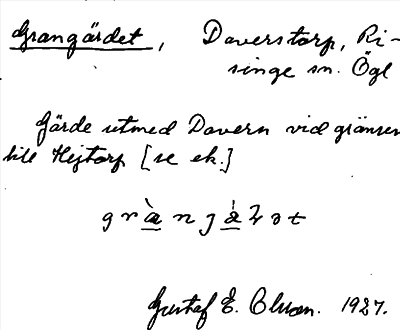 Grangärdet, Daverstorp, Ri-
singe sn. Ögl
Gärde utmed Davern vid gränsen
till Hejtorp [se ek.]
Gustaf E. 1927.